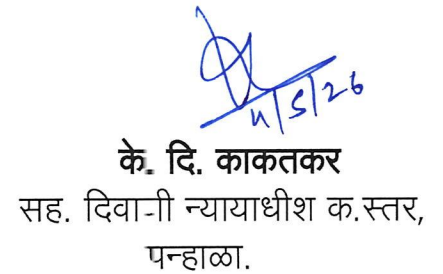 4/5/26
के. दि. काकतकर
सह. दिवानी न्यायाधीश क.स्तर,
पन्हाळा.